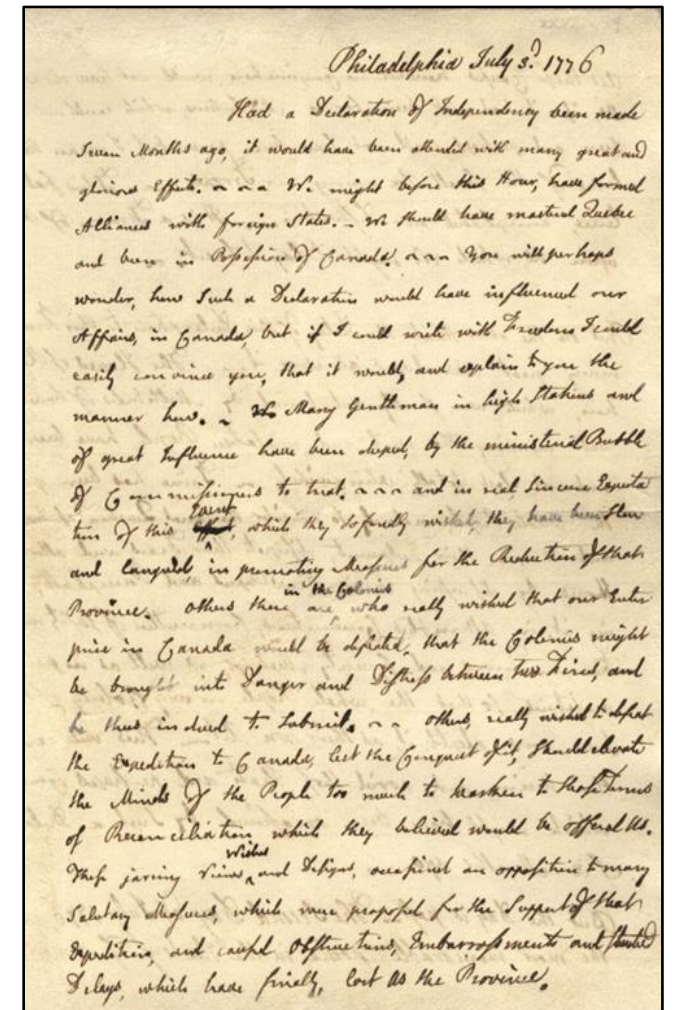 Philadelphia July 3d. 1776
Had a Declaration of Independency been made
seven Months ago, it would have been attended with many great and
glorious Effects. We might before this Hour, have formed
Alliances with foreign States. - We should have mastered Quebec
and been in Possession of Canada. You will perhaps
wonder, how Such a Declaration would have influenced our
Affairs, in Canada, but if I could write with Freedom I could
easily convince you, that it would, and explain to you the
manner how. - Many Gentlemen in high Stations and
of great Influence have been duped, by the ministerial Bubble
of Commissioners to treat. and in real, Sincere Expecta
tion of this Event, which they so fondly wished, they have been slow
and languid, in promoting Measures for the Reduction of that
Province. Others there are in the Colonies who really wished that our Enter
prise in Canada would be defeated, that the Colonies might
be brought into Danger and Distress between two Fires, and
be thus induced to Submit. others, really wished to defeat
the Expedition to Canada, lest the Conquest of it, should elevate
the Minds of the People too much to hearken to those Terms
of Reconciliation which they believed would be offered Us.
These jarring Views, Wishes and Designs, occasioned an opposition to many
salutary Measures, which were proposed for the Support of that
Expedition, and caused Obstructions, Embarrassments and studied
Delays, which have finally, lost Us the Province.